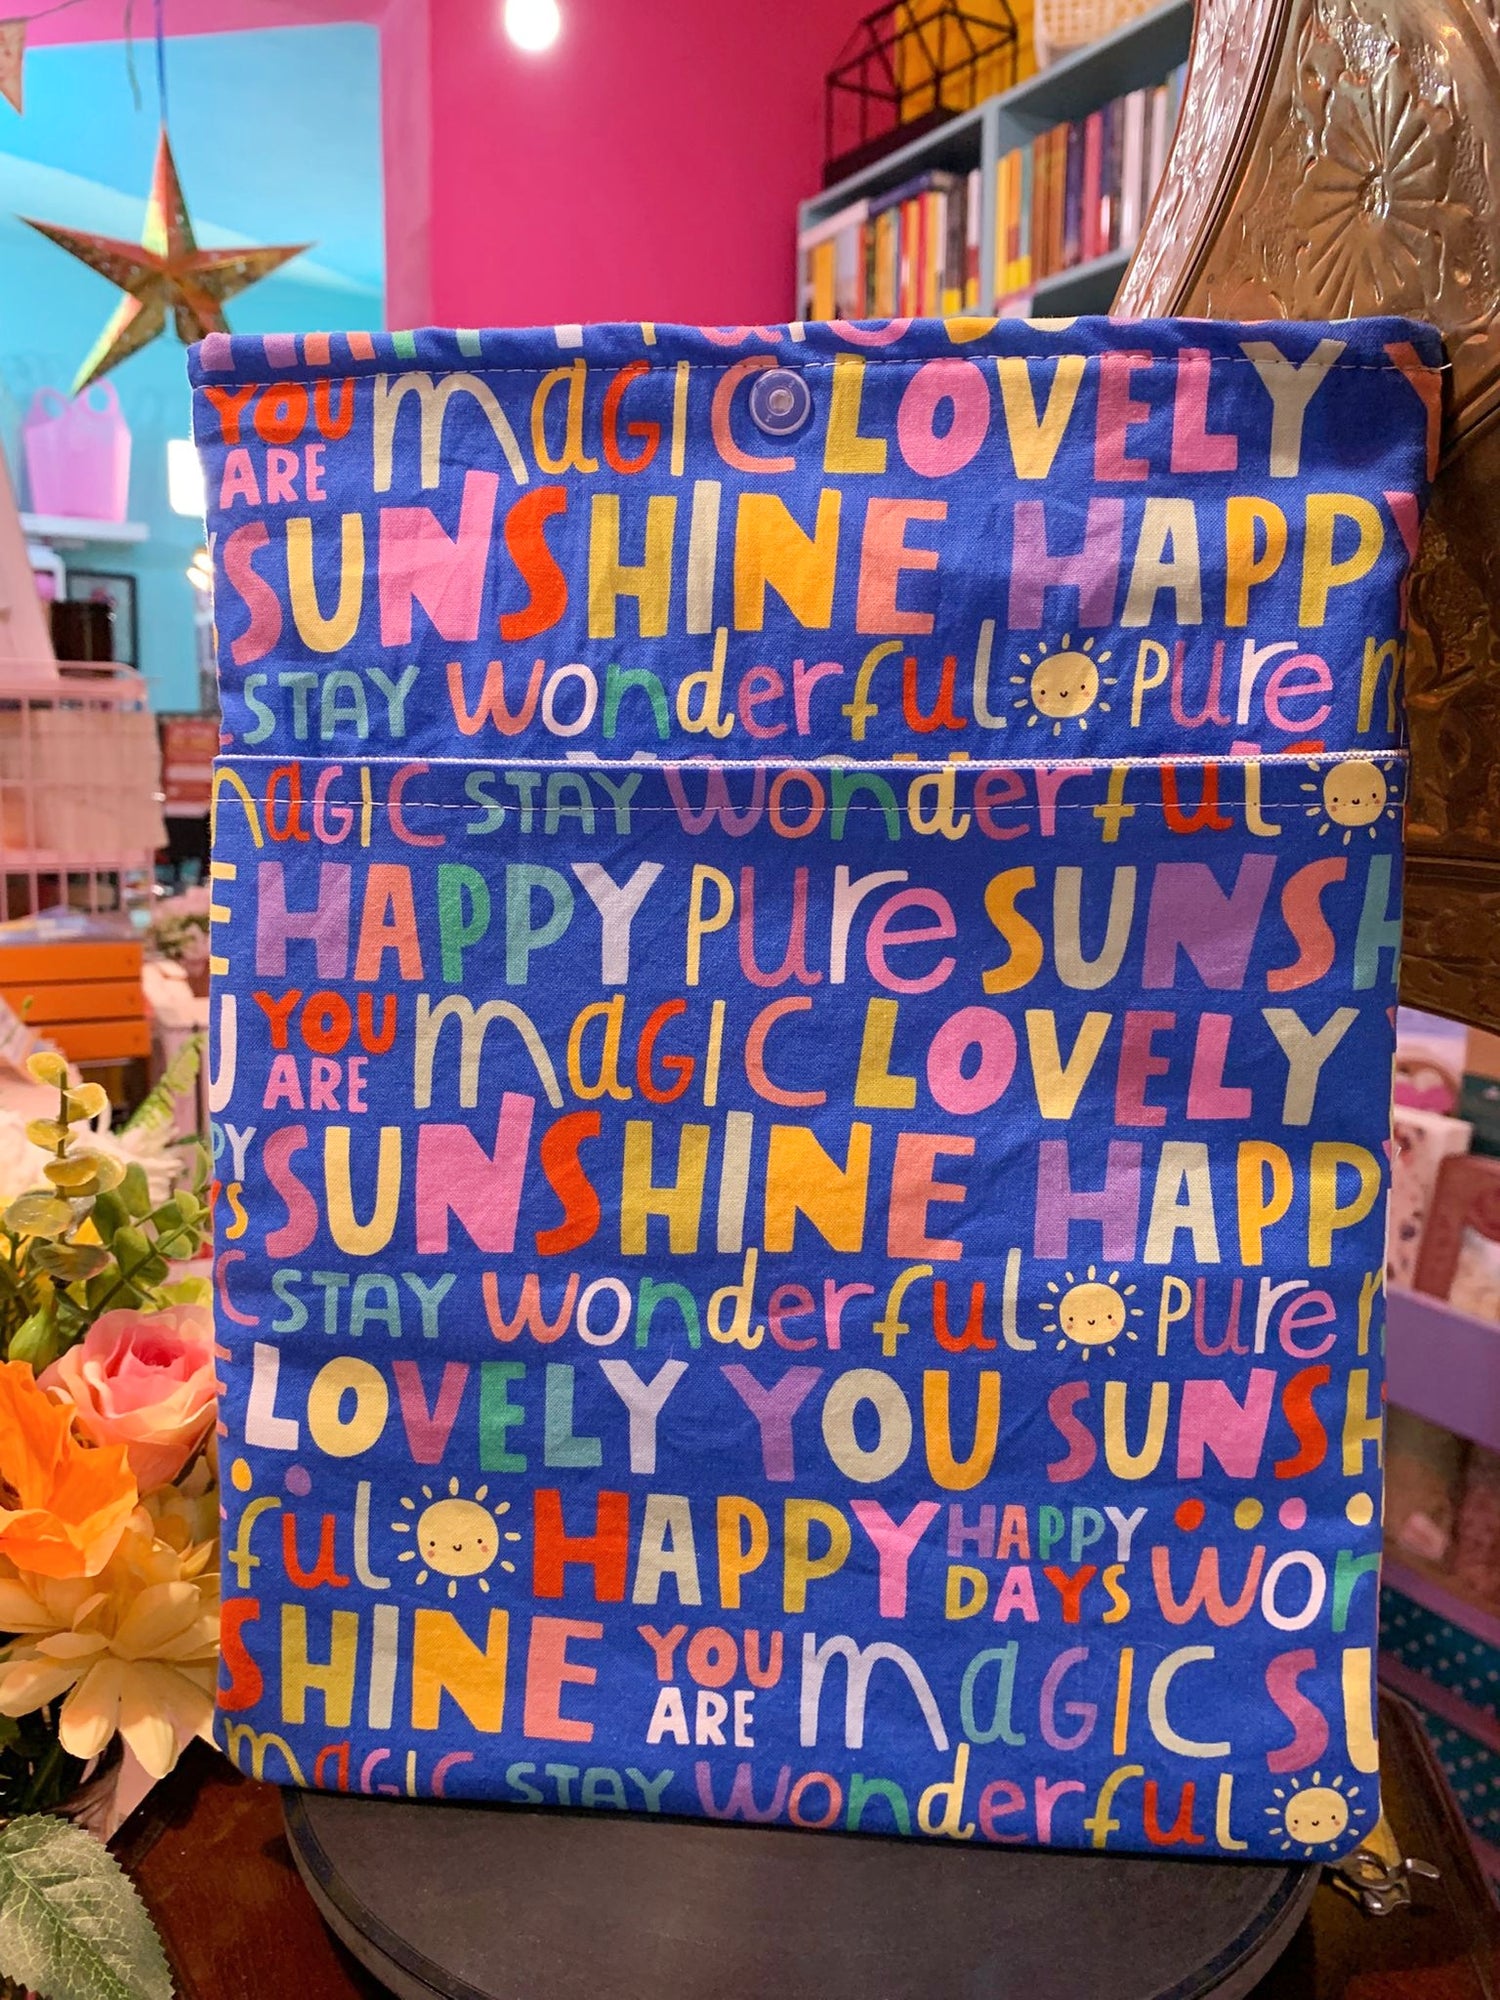 YOU ARE magic LOVELY
SUNSHINE HAPP
STAY wonderful pure m
magic STAY wonderful
E HAPPY pure SUNSH
U YOU ARE magic LOVELY
PY SUNSHINE HAPP
YS
C STAY wonderful pure
LOVELY YOU SUNSH
ful HAPPY HAPPY DAYS won
SHINE YOU ARE magic SU
magic STAY wonderful